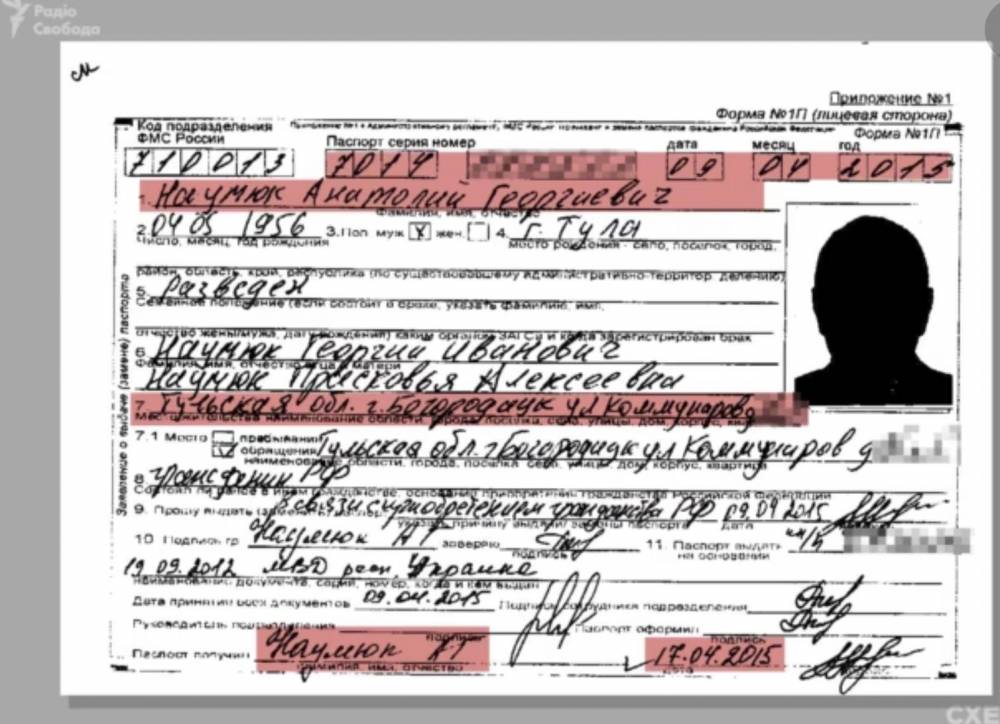 Радіо
Свобода
Приложение №1
Форма №1П (лицевая сторона)
Форма №1П
Код подразделения
ФМС России
Паспорт серия номер
дата месяц год
710013 7014 09 04 2015
1. Наумюк Анатолий Георгиевич
фамилия, имя, отчество
2. 04 05 1956 3. Пол муж X жен. 4. г. Тула
число, месяц, год рождения место рождения - село, поселок, город,
район, область, край, республика (по существовавшему административно-территор. делению)
5. Разведен
Семейное положение (если состоит в браке, указать фамилию, имя,
отчество жены/мужа, дату рождения) каким органом ЗАГСа и когда зарегистрирован брак
6. Наумюк Георгий Иванович
Фамилия, имя, отчество отца и матери
Наумюк Прасковья Алексеевна
7. Тульская обл. г. Богородицк ул Коммунаров
7.1 Место пребывания
V обращения Тульская обл. г. Богородицк ул Коммунаров д
наименование области, города, поселка, села, улицы, дом, корпус, квартира
8. РФ
Состоял ли ранее в ином гражданстве, основания приобретения гражданства Российской Федерации
9. Прошу выдать В связи с приобретением гражданства РФ 09.04.2015
указать причину выдачи замены паспорта дата
10 Подпись гр. Наумюк АГ заверяю 11. Паспорт выдать
подпись на основании
19.09.2012 МВД Украина
наименование документа, серия, номер, когда и кем выдан
Дата принятия всех документов 09.04.2015 Подпись сотрудника подразделения
Руководитель подразделения Паспорт оформил
подпись подпись
Паспорт получил Наумюк АГ 17.04.2015
фамилия, имя, отчество дата
Заявление о выдаче (замене) паспорта
СХЕ